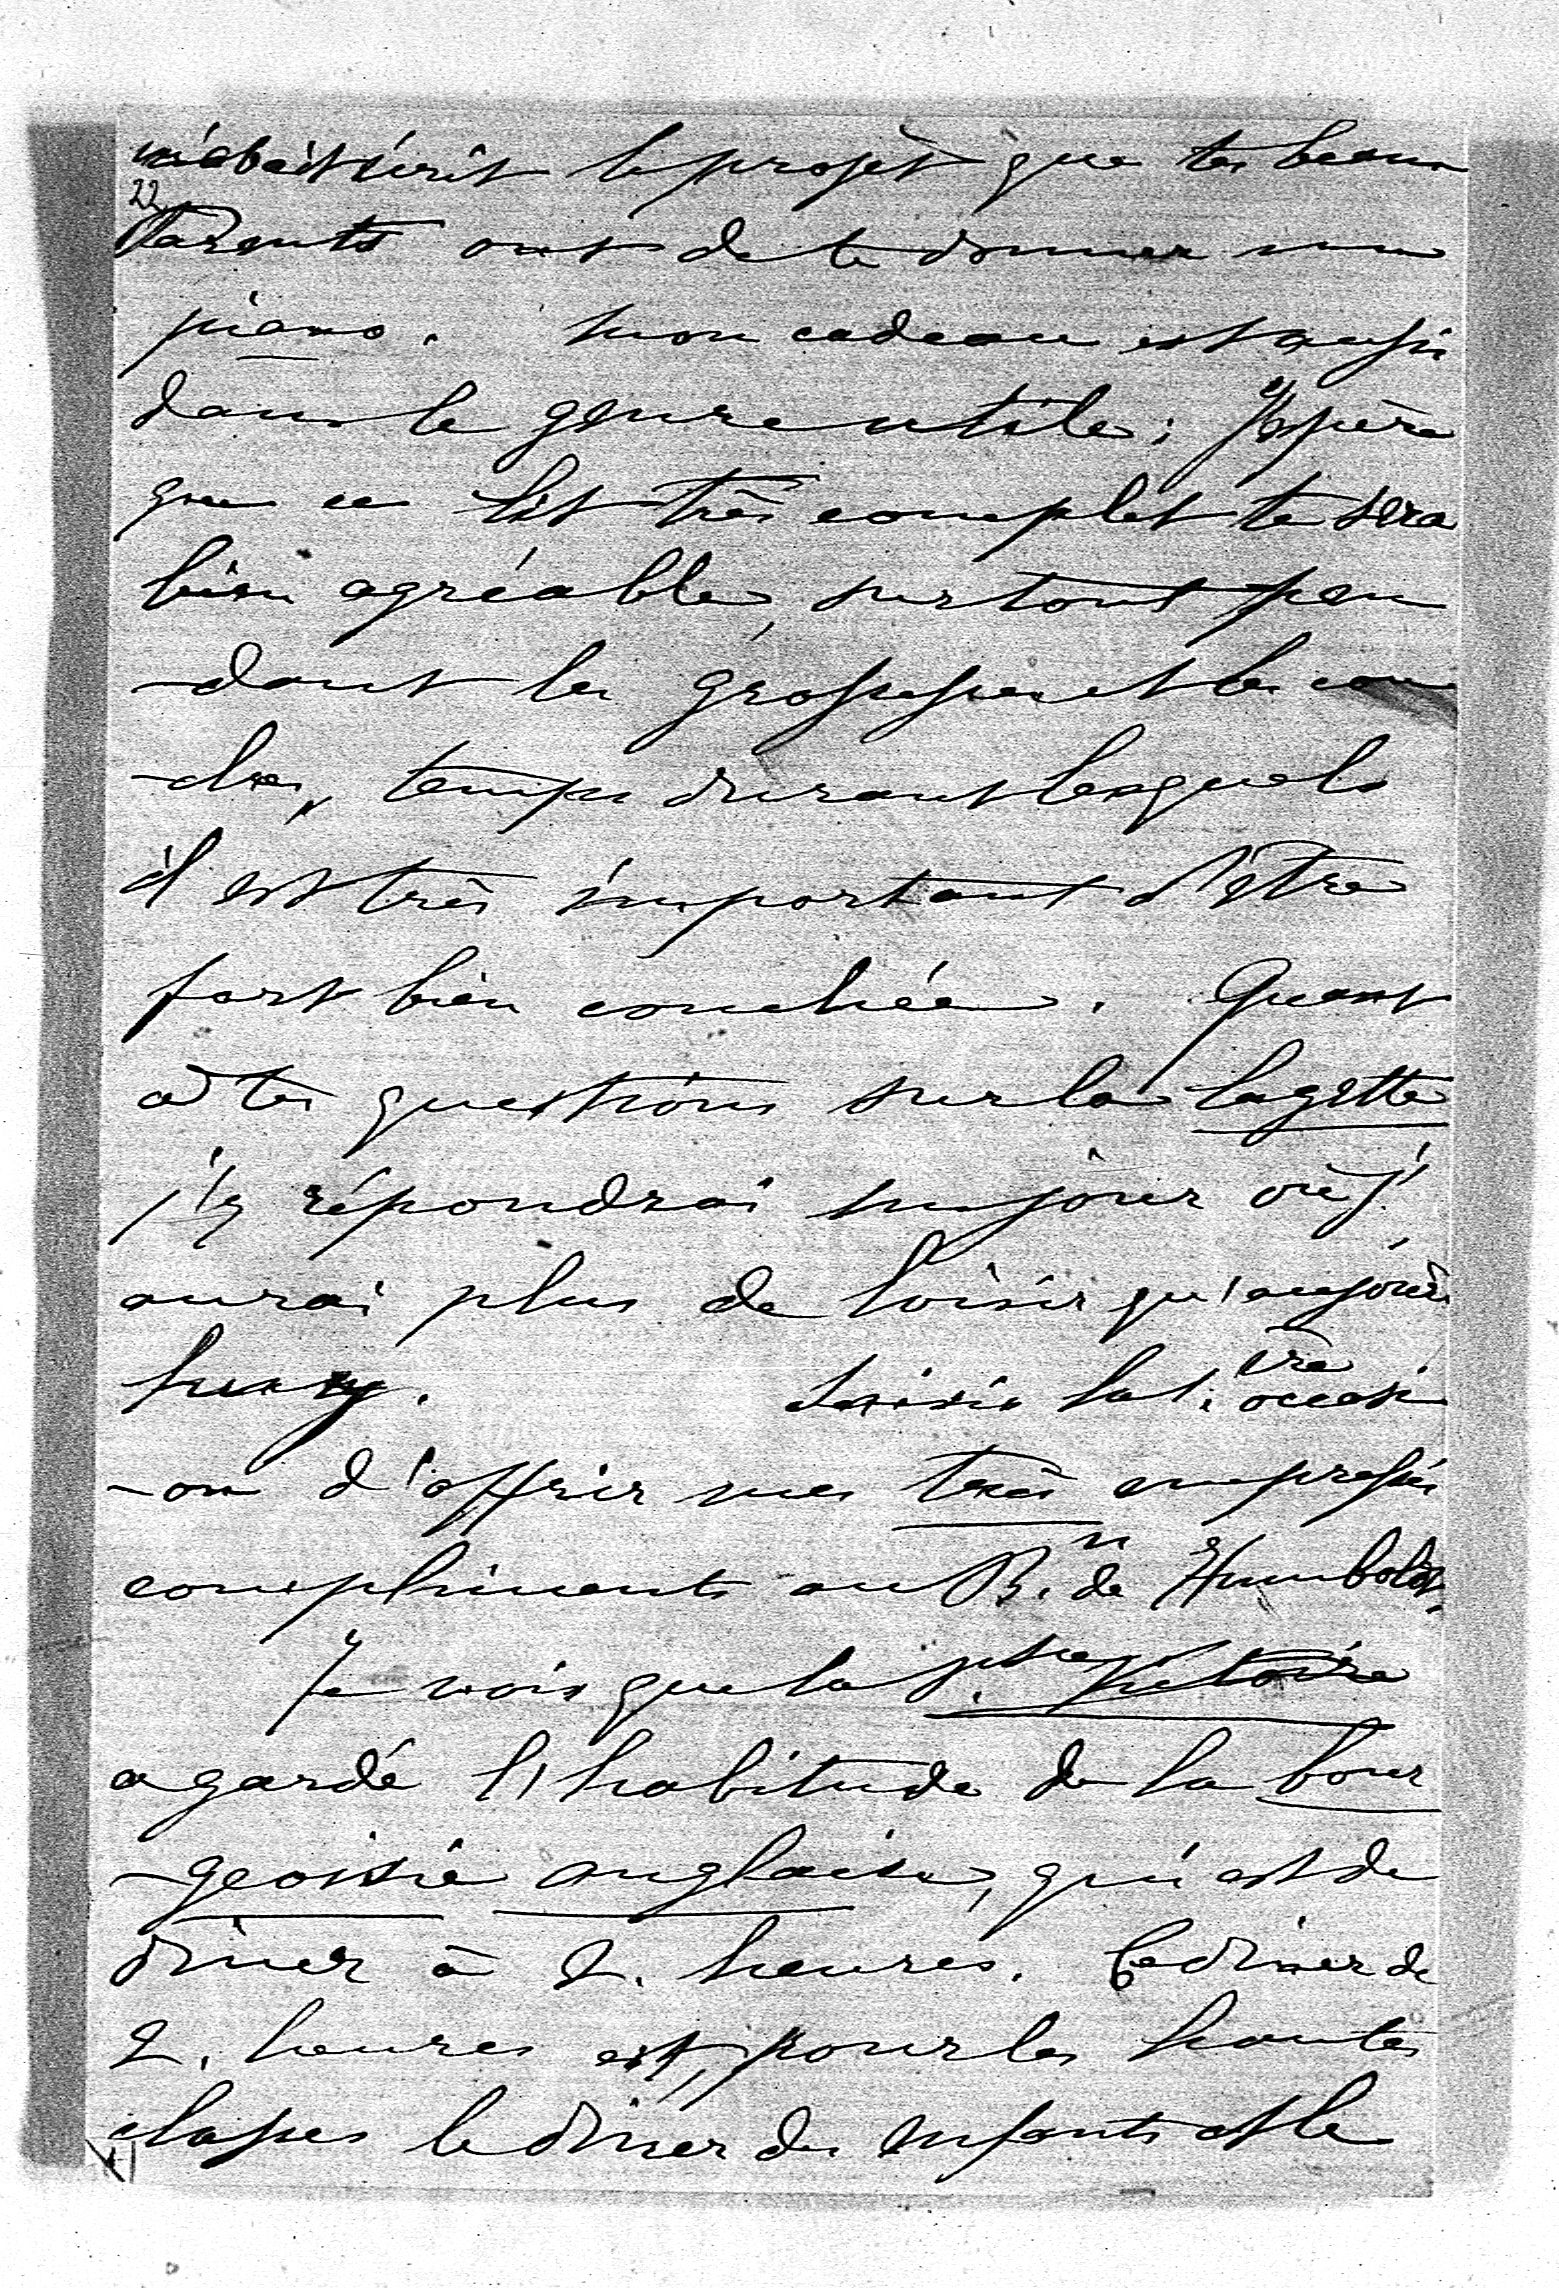 le projet que tes beaux
22
Parents ont de te donner un
piano. Mon cadeau est aussi
dans le genre utile; j'espère
que ce lit très complet te sera
bien agréable, surtout pen
-dant les grossesses et les cou
-ches, temps durant lesquels
il est très important d'être
fort bien couchée. Quant
à tes questions sur la layette
j'y répondrai un jour où j'
aurai plus de loisir qu'aujourd'
huy. Saisis la 1.ère occasi
-on d'offrir mes très empressés
compliments au B.n de Humboldt.
Je vois que la p.sse Victoire
a gardé l'habitude de la bour
-geoisie anglaise, qui est de
dîner à 2. heures. Ce dîner de
2. heures est, pour les hautes
classes le dîner des enfants et le